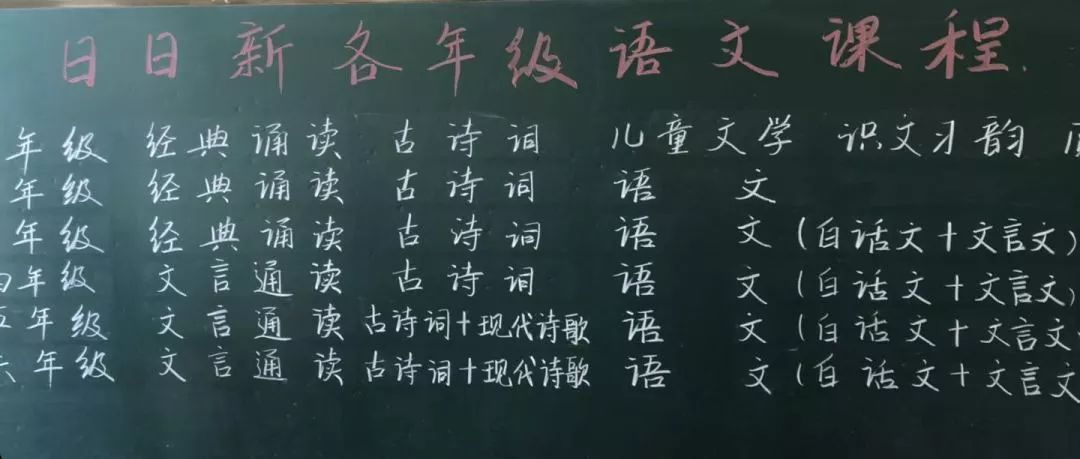 日日新各年级语文课程.
年级 经典诵读 古诗词 儿童文学 识文习韵
年级 经典诵读 古诗词 语文
年级 经典诵读 古诗词 语文(白话文+文言文)
四年级 文言通读 古诗词 语文(白话文+文言文)
五年级 文言通读 古诗词+现代诗歌 语文(白话文+文言文
六年级 文言通读 古诗词+现代诗歌 语文(白话文+文言文